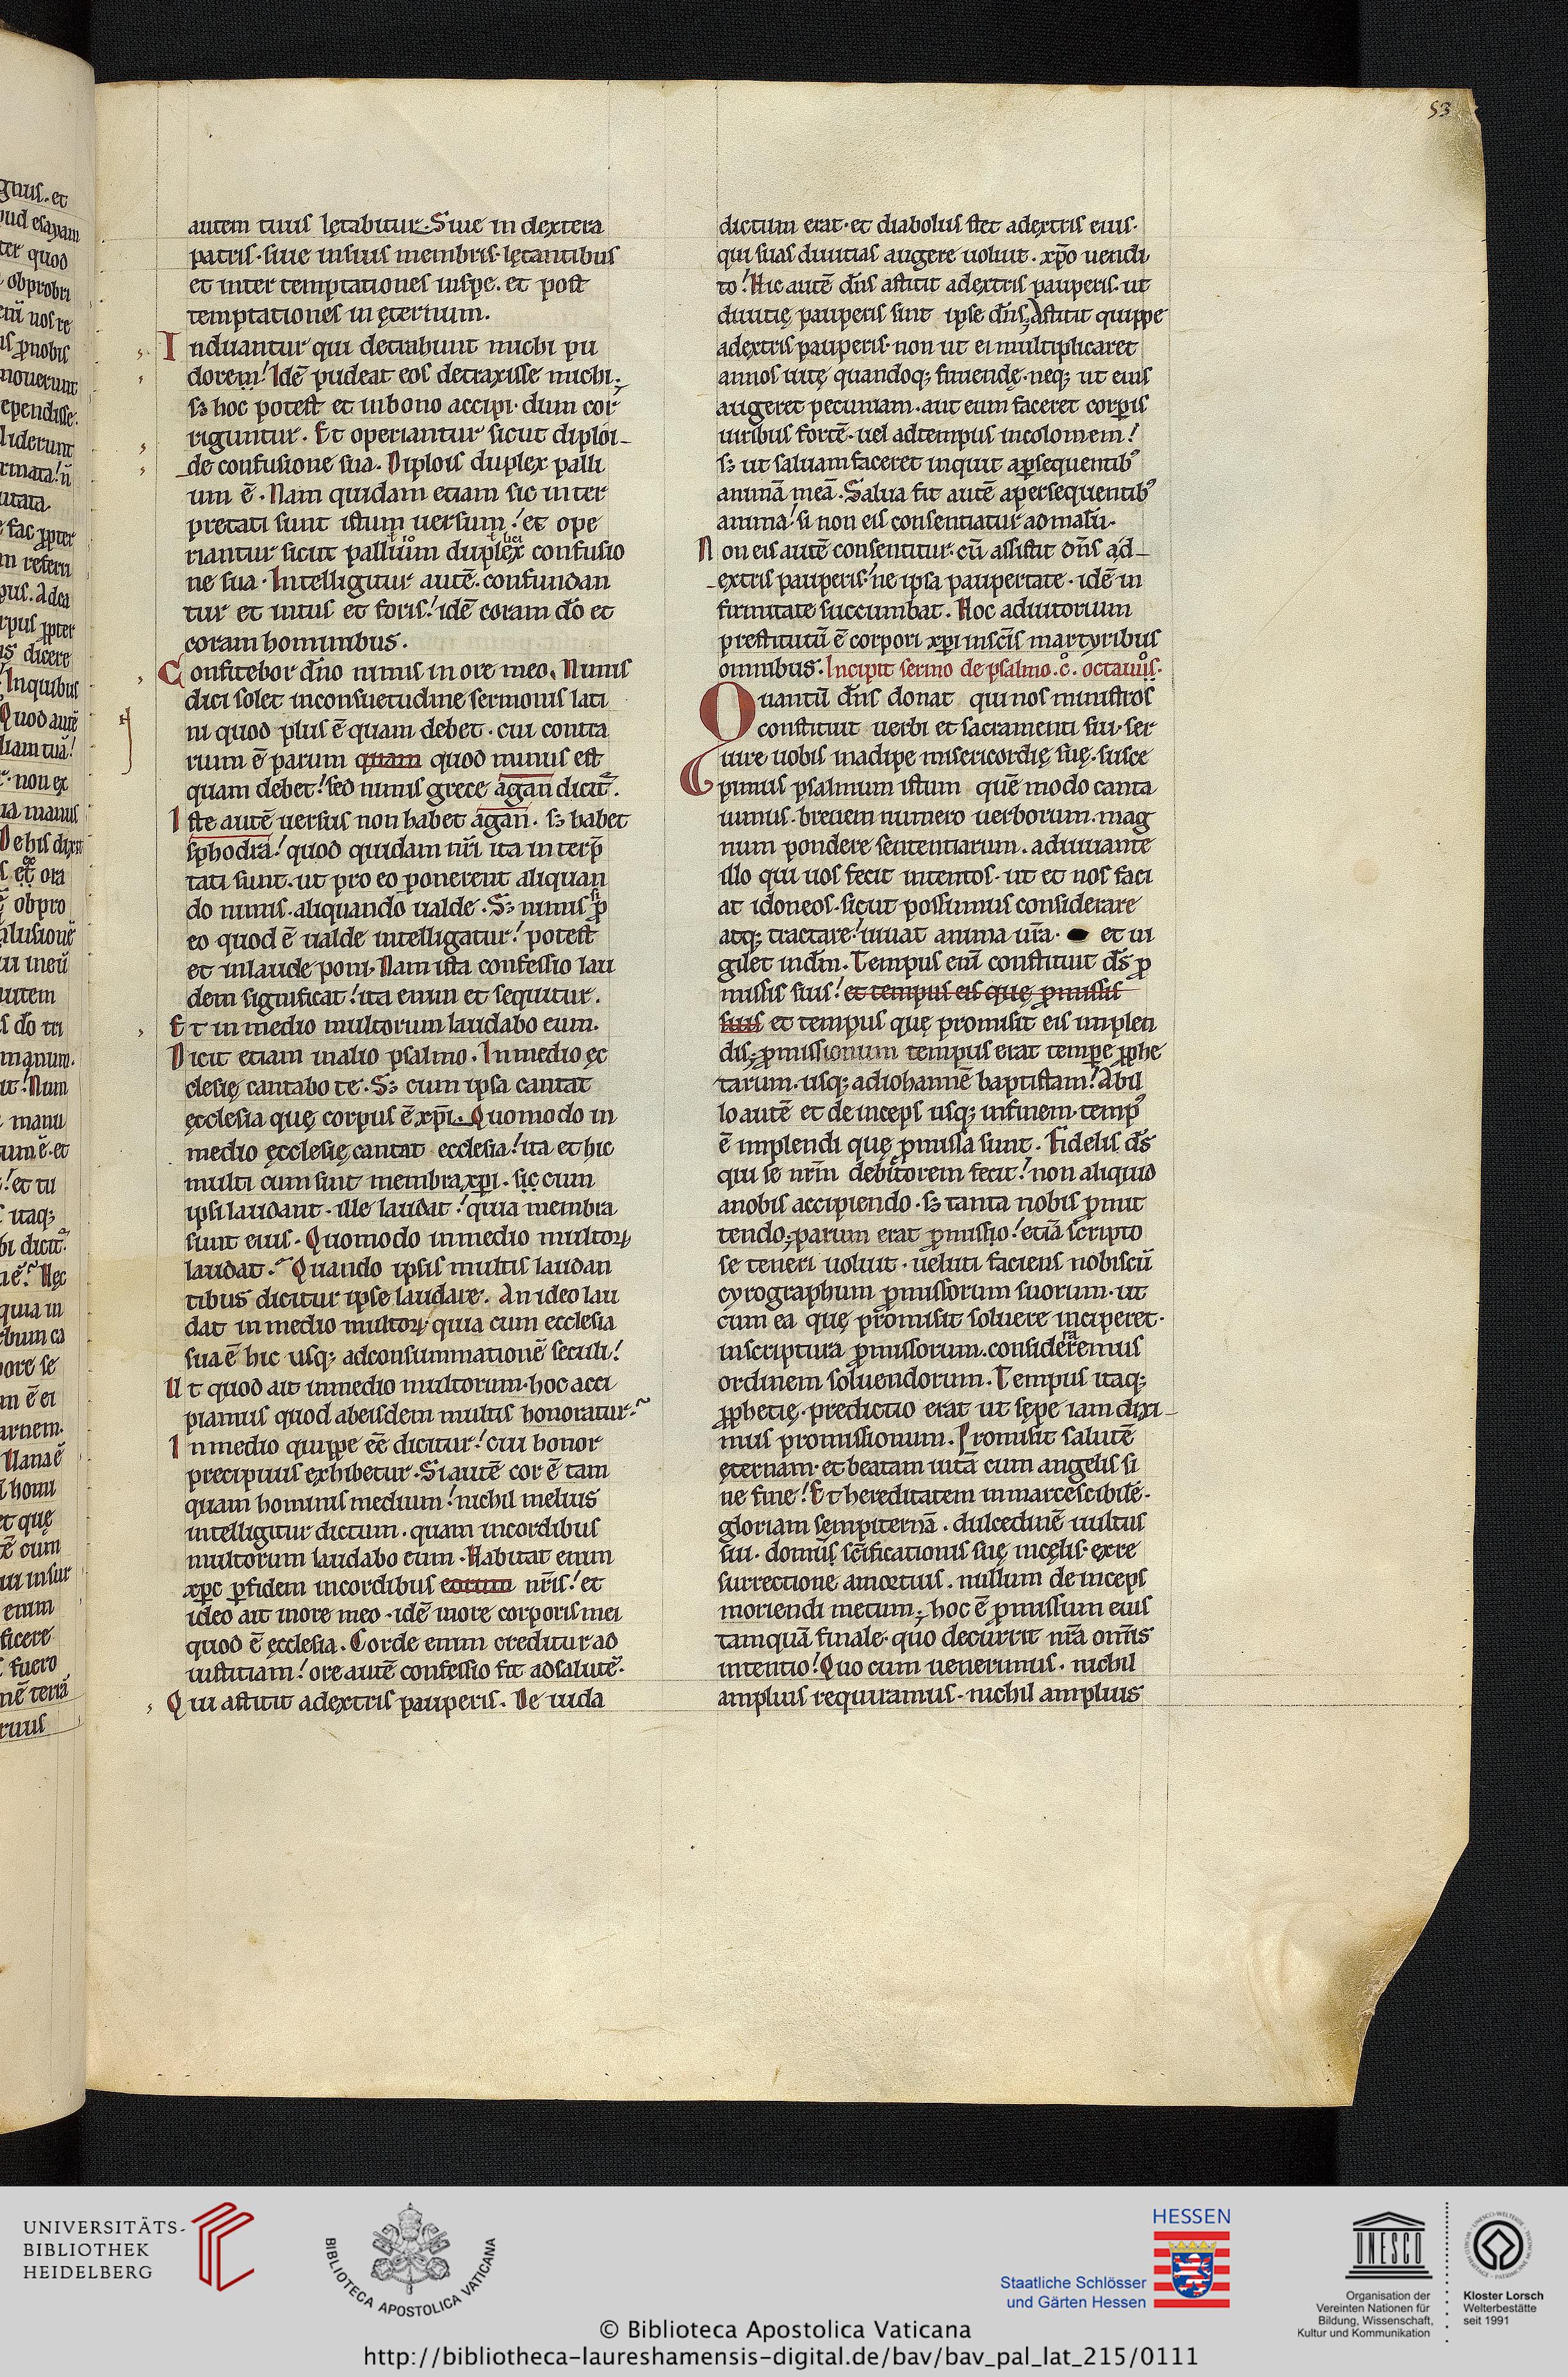 53
gnus. et
pud esayam
ter quod
obprobri
eni uos re
mouerunt
ependisse.
liderunt
utata.
fac ꝓpter
m referri
pus. Adea
rpus ꝓpter
dicere
Inquibus
Quod autē
liam tuā!
non ex
ua manus
De his dixit
et ora
obpro
lusionē
iu meū
autem
manum.
Num
manu
et tu
itaq;
bi dicit᷑
Hęc
quia in
bore se
arnem.
honu
et quę
cum
enim
ficere
fuero
autem tuus lętabitur. Siue in dextera
patris. siue insuis membris. lętantibus
et inter temptationes inspe. et post
temptationes in ęternum.
Induantur qui detrahunt michi pu
dorem! Idē pudeat eos detraxisse michi;
sꝫ hoc potest et inbono accipi. dum cor
riguntur. Et operiantur sicut diploi-
de confusione sua. Diplois duplex palli
um ē. Nam quidam etiam sic inter
pretati sunt istum uersum! et ope
riantur sicut pallium duplex confusio
ne sua. Intelligitur autē. confundan
tur et intus et foris! idē coram do et
coram hominibus.
Confitebor dn̄o nimis in ore meo. Nimis
dici solet inconsuetudine sermonis lati
ni quod plus ē quam debet. cui contra
rium ē parum quam quod minus est
quam debet! sed nimis grece agan dicit᷑.
Iste autē uersus non habet agan. sꝫ habet
sphodra! quod quidam nr̄i ita interp̄
tati sunt. ut pro eo ponerent aliquan
do nimis. aliquando ualde. Sꝫ nimis si ꝓ
eo quod ē ualde intelligatur! potest
et inlaude poni. Nam ista confessio lau
dem significat! ita enim et sequitur.
Et in medio multorum laudabo eum.
Dicit etiam inalio psalmo. Inmedio ęc
clesię cantabo te. Sꝫ cum ipsa cantat
ęcclesia quę corpus ē xp̄i. Quomodo in
medio ęcclesię cantat ecclesia! ita et hic
multi cum sint membra xp̄i. sic cum
ipsi laudant. ille laudat! quia membra
sunt eius. Quomodo inmedio multoꝝ
laudat. Quando ipsis multis laudan
tibus dicitur ipse laudare. An ideo lau
dat in medio multoꝝ quia cum ecclesia
sua ē hic usq; adconsummationē seculi!
Ut quod ait inmedio multorum. hoc acci
piamus quod abeisdem multis honoratur.
Inmedio quippe eē dicitur! cui honor
precipuus exhibetur. Si autē cor ē tam
quam hominis medium! nichil melius
intelligitur dictum. quam incordibus
multorum laudabo eum. Habitat enim
xp̄c ꝑfidem incordibus eorum nr̄is! et
ideo ait inore meo. idē inore corporis mei
quod ē ęcclesia. Corde enim creditur ad
iustitiam! ore autē confessio fit adsalutē.
Qui astitit adextris pauperis. De iuda
dictum erat. et diabolus stet adextris eius.
qui suas diuitias augere uoluit. xp̄o uendi
to! Hic autē dn̄s astitit adextris pauperis. ut
diuitię pauperis sint ipse dn̄s; Astitit quippe
adextris pauperis. non ut ei multiplicaret
annos uitę quandoq; finiendę. neq; ut eius
augeret pecuniam. aut eum faceret corꝑis
uiribus fortē. uel adtempus incolomem!
sꝫ ut saluam faceret inquit aꝑsequentib᷒
animā meā. Salua fit autē apersequentib᷒
anima! si non eis consentiatur ad malū.
Non eis autē consentitur. cū assistit dn̄s ad-
extris pauperis! ne ipsa paupertate. idē in
firmitate succumbat. Hoc adiutorium
prestitutū ē corpori xp̄i inscīs martyribus
omnibus. Incipit sermo de psalmo .c͛. octauus͛.
Quantū dn̄s donat qui nos ministros
constituit uerbi et sacramenti sui. ser
uire uobis inadipe misericordię suę. susce
pimus psalmum istum quē modo canta
uimus. breuem numero uerborum. mag
num pondere sententiarum. adiuuante
illo qui uos fecit intentos. ut et nos faci
at idoneos. sicut possumus considerare
atq; tractare! uiuat anima ur̄a. et ui
gilet indm̄. Tempus enī constituit ds̄ ꝓ
missis suis! et tempus eis que ꝓmissis
suis et tempus quę promisit eis implen
dis; ꝓmissionum tempus erat tempe ꝓphe
tarum. usq; adiohannē baptistam! Abil
lo autē et deinceps usq; infinem. temp᷒
ē implendi quę ꝓmissa sunt. Fidelis ds̄
qui se nr̄m debitorem fecit! non aliquid
anobis accipiendo. sꝫ tanta nobis ꝓmit
tendo; parum erat ꝓmissio! etiā scripto
se teneri uoluit. ueluti faciens nobiscū
cyrographum ꝓmissorum suorum. ut
cum ea quę promisit soluere inciperet.
inscriptura ꝓmissorum. consideraremus
ordinem soluendorum. Tempus itaq;
ꝓphetię. predictio erat ut sępe iam dixi-
mus promissionum. Promisit salutē
ęternam. et beatam uitā cum angelis si
ne fine! Et hereditatem inmarcescibilē.
gloriam sempiternā. dulcedinē uultus
sui. domus sc̄ificationis suę incęlis. exre
surrectione amortuis. nullum deinceps
moriendi metum; hoc ē ꝓmissum eius
tamquā finale. quo decurrit nr̄a omīs
intentio! Quo cum uenerimus. nichil
amplius requiramus. nichil amplius
UNIVERSITÄTS-
BIBLIOTHEK
HEIDELBERG
BIBLIOTECA APOSTOLICA VATICANA
HESSEN
Staatliche Schlösser
und Gärten Hessen
UNESCO
Organisation der
Vereinten Nationen für
Bildung, Wissenschaft,
Kultur und Kommunikation
Kloster Lorsch
Welterbestätte
seit 1991
© Biblioteca Apostolica Vaticana
http://bibliotheca-laureshamensis-digital.de/bav/bav_pal_lat_215/0111